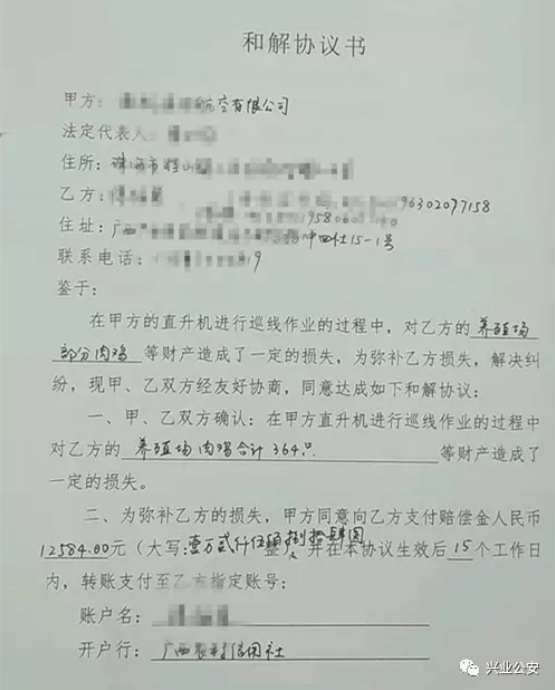 和解协议书
甲方：航空有限公司
法定代表人：
住所：珠海市
乙方：96302097158
1958060
住址：广西中田社15-1号
联系电话：19
鉴于：
在甲方的直升机进行巡线作业的过程中，对乙方的养殖场
部分肉鸡等财产造成了一定的损失，为弥补乙方损失，解决纠
纷，现甲、乙双方经友好协商，同意达成如下和解协议：
一、甲、乙双方确认：在甲方直升机进行巡线作业的过程中
对乙方的养殖场肉鸡合计364只等财产造成了
一定的损失。
二、为弥补乙方的损失，甲方同意向乙方支付赔偿金人民币
12584.00元（大写：壹万贰仟伍佰捌拾肆圆整），并在本协议生效后15个工作日
内，转账支付至乙方指定账号：
账户名：
开户行：广西农村信用社
兴业公安